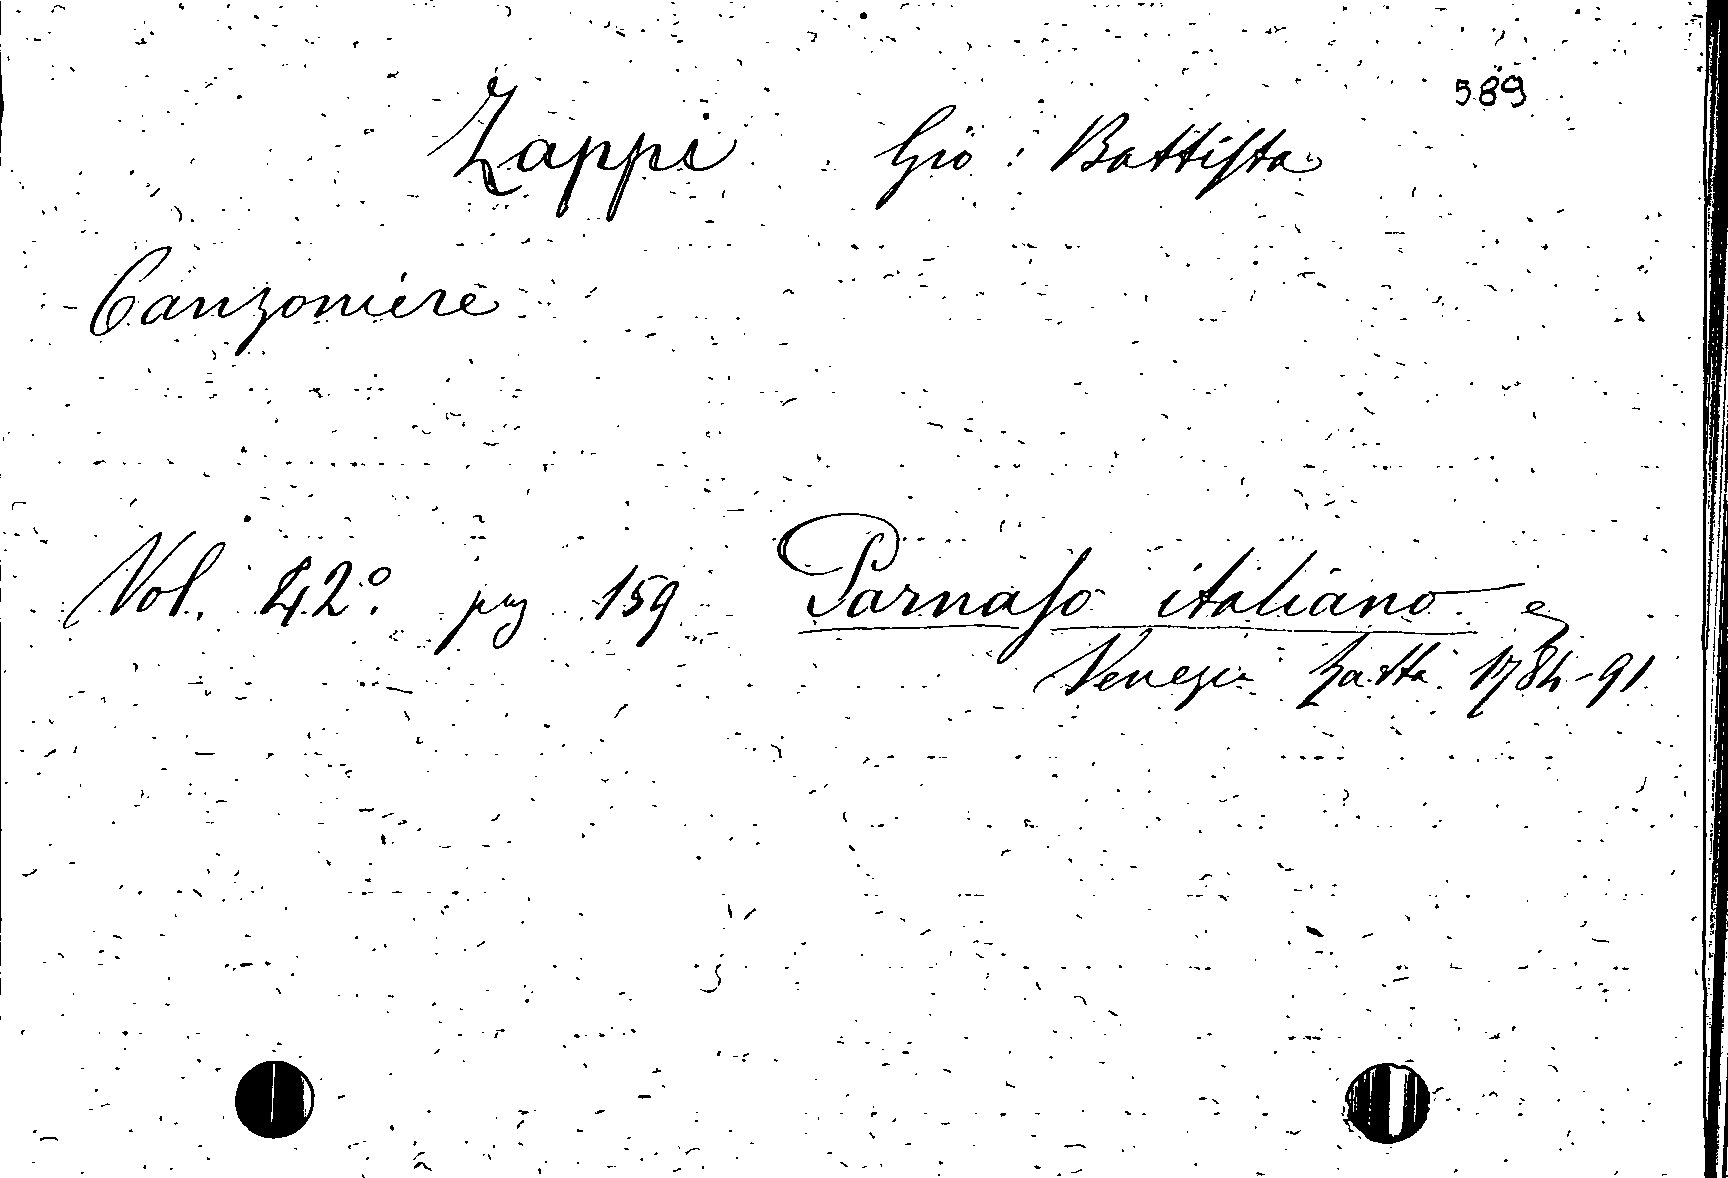 589
Zappi Gio: Battista
Canzoniere
Vol. 42º. pag 159 Parnaso italiano
Venezia Zatta 1784-91